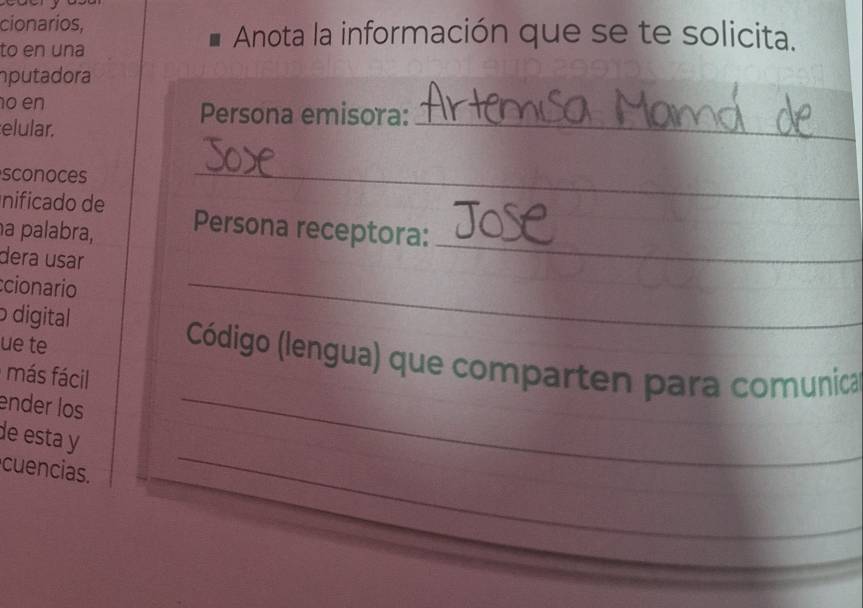 cionarios,
to en una
putadora
o en
elular.
sconoces
nificado de
a palabra,
dera usar
cionario
digital
ue te
más fácil
ender los
de esta y
cuencias.
▪ Anota la información que se te solicita.
Persona emisora: Artemisa Mamá de
Jose
Persona receptora: Jose
Código (lengua) que comparten para comunica